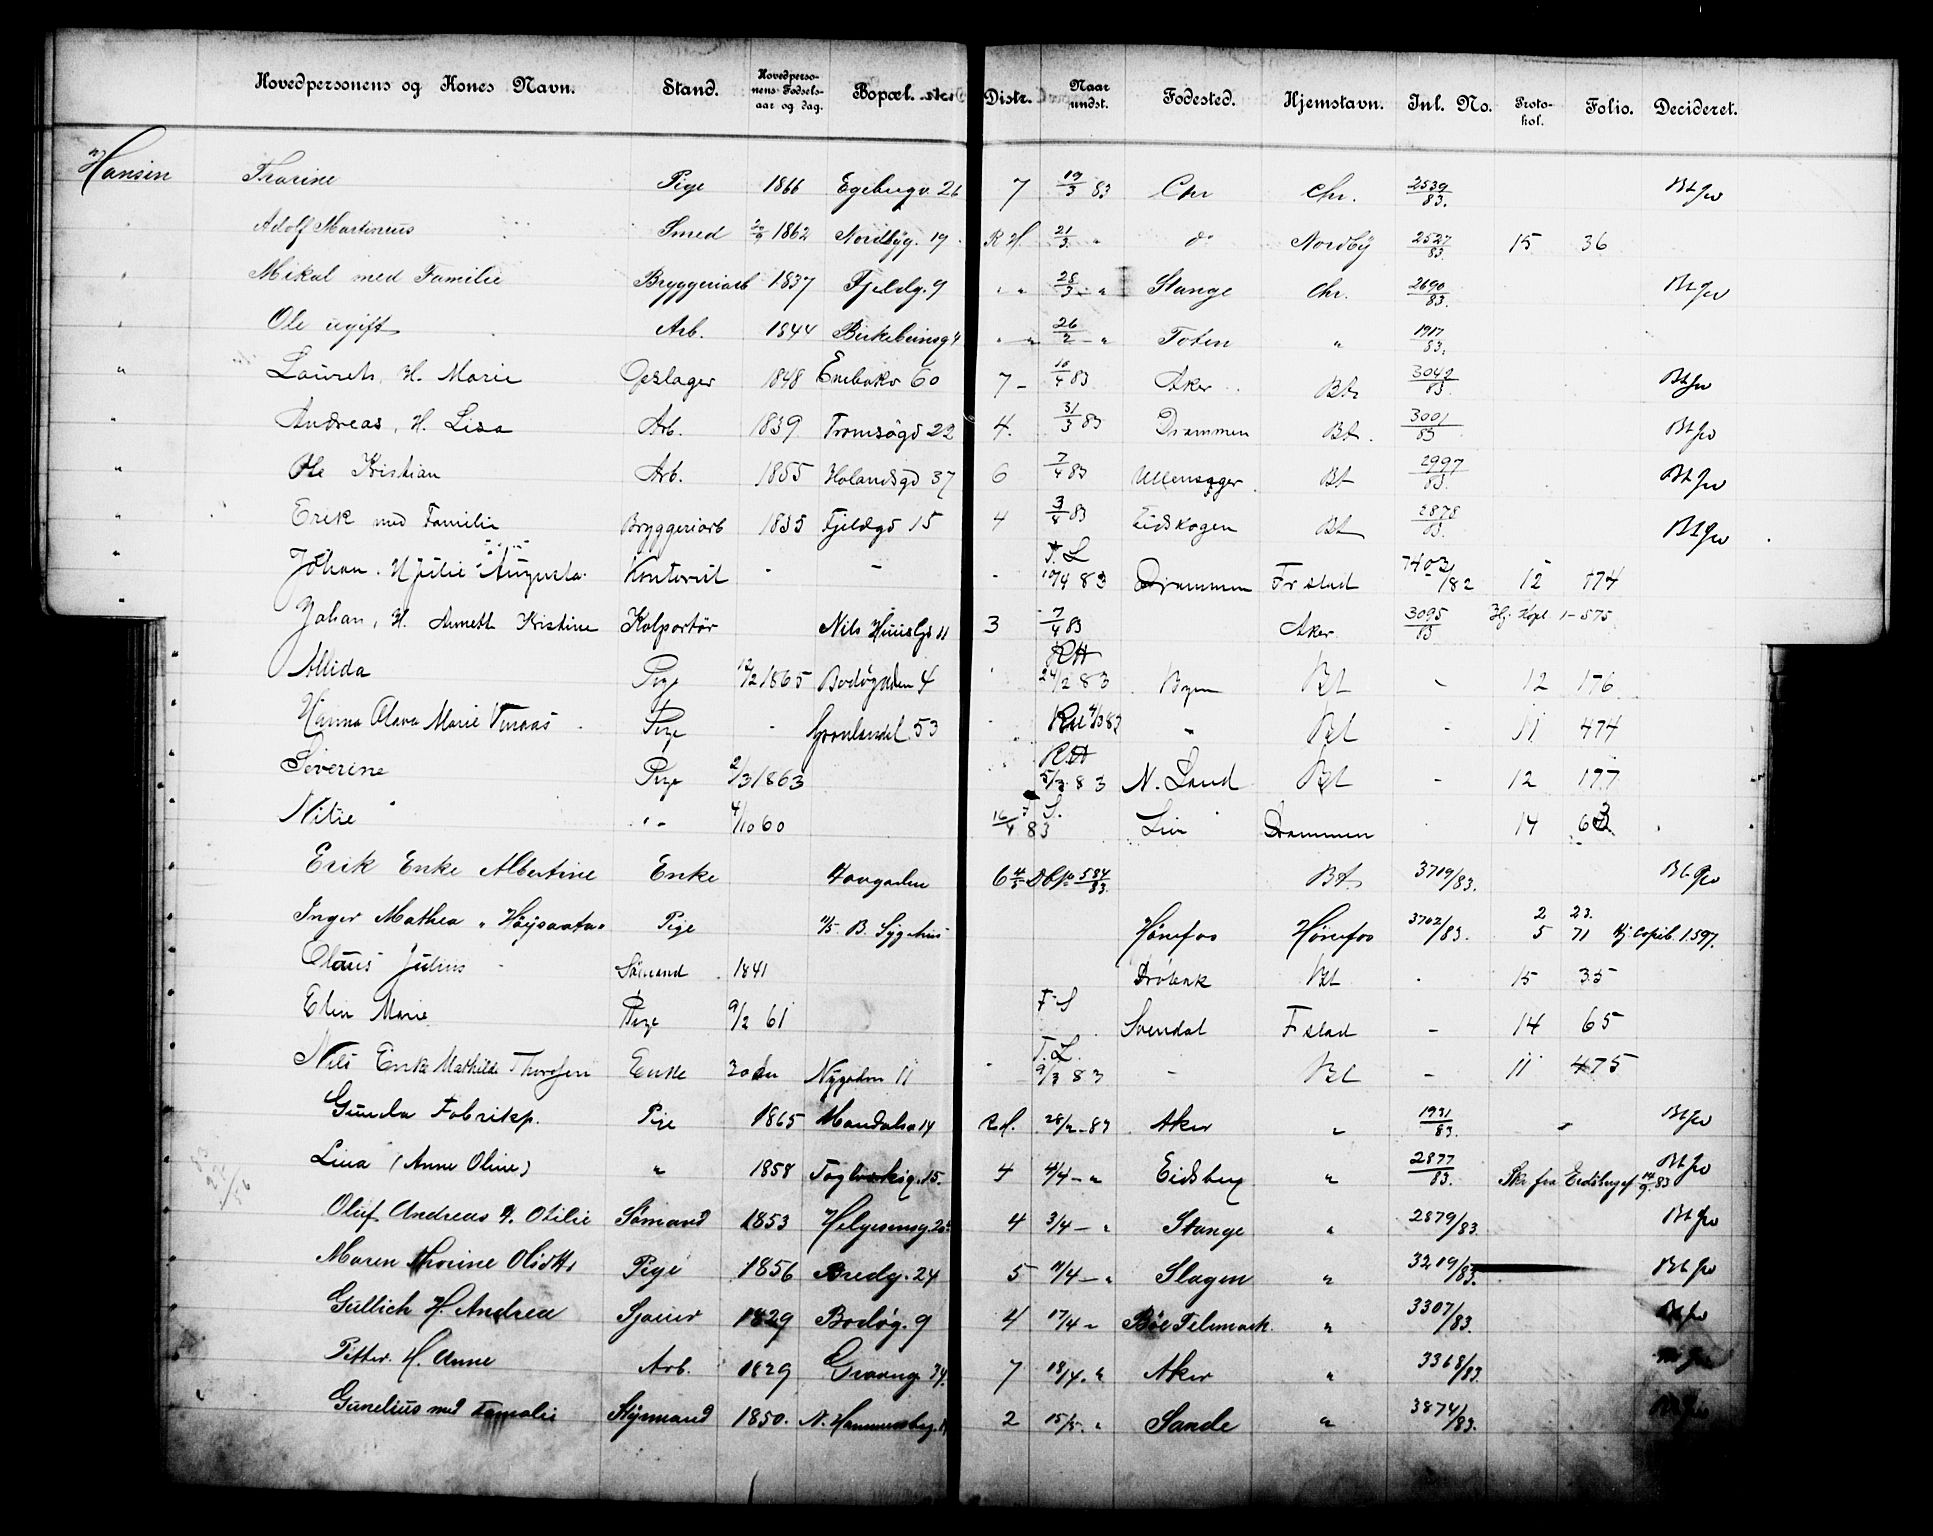 Hovedpersonens og Kones Navn. Stand. Hovedpersonens Fødselsaar og dag. Bopæl. Distr. Naar undst. Fødested. Hjemstavn. Inl. No. Protokol. Folio. Decideret.
Hansen Thorine Pige 1866 Egebergv. 26 7 19/3 83 Chr Chr. 2539/83.
" Adolf Martinius Smed 1862 Nordbyg. 19 R H. 21/3 " do Nordby 2527/83. 15 36
" Mikal med Familie Bryggeriarb 1837 Fjeldg. 9 " " 28/3 - " Stange Chr. 2690/83.
" Ole ugift Arb. 1844 Birkebeinsg 4 " " 26/2 - " Toten " 1917/83.
" Laurets, H. Marie Oeslager 1848 Enebakv 60 7 - 10/4 83 Aker Bt 3042/83
" Andreas, H. Lisa Arb. 1839 Tromsøgd 22 4. 31/3 83 Drammen Bt. 3001/83
" Ole Kristian Arb. 1855 Holandsgd 37 6 7/4 83 Ullensager Bt 2997/83.
" Erik med Familie Bryggeriarb 1835 Fjeldgd 15 4 3/4 83 Eidskogen Bt 2878/83.
" Johan. H Julie Augusta. Kontorist - - - F. L 10/4 83 Drammen Fr stad 7402/182 12 174
" Johan, H. Annette Kristine Kolportør Nils Huusgd 11 3 7/4 83 Aker 3095/83 Hj. Kopi 1-575
" Allida Pige 12/2 1865 Bodøgaden 4 " RH 24/2 83 Byen Bt - 12 176
" Hanna Olava Marie Pige - Grønlandsl 53 - " Bt - 11 474
" Severine Pige 2/3 1863 RH 5/3 83 N. Land Bt - 12 177
" Nilie " " - 4/10 60 16/4 83 F S. Lier Drammen 14 63
" Erik Enke Albertine Enke 6 Bt 3719/83.
" Inger Mathea Pige B. Sygehus Hønefos Hønefos 3702/83. 2 23. 5 71 Hj. Copib. 1.597.
" Olaus Julius - Sømand 1841 Drøbak Bt 15 35
" Elin Marie Pige 9/2 61 F S Svendal F stad - 14 65
" Nils Enke Mathilde Thorsen Enke 30 Nygaden 11 " F. L. 9/3 83 - Bt - 11 475
" Gunda Fabrikp. Pige 1865 Mandalsg 14 R H. 28/2 - 83 Aker " 1931/83. "
" Lina (Anne Oline) " 1858 Teglverksg. 15. 4 4/4 - " Eidsberg " 2877/83. Skr fra Eidsberg
" Oluf Andreas H. Otilie Sømand 1853 Helgesensg. 4 3/4 - " Stange " 2879/83.
" Maren Thorine Pige 1856 Bredg. 24 5 11/4 - " Slagen " 3219/83.
" Gullich H. Andrea Sjauer 1829 Bodøg. 9 4 17/4 - Bøe Telemark. " 3307/83.
" Petter. H. Anne Arb. 1829 Grønng 34. 7 18/4. " Aker " 3368/83.
" Gunelius med Familie Styrmand 1850. N. Hammersborg. 2 15/5. " Sande " 3874/83.